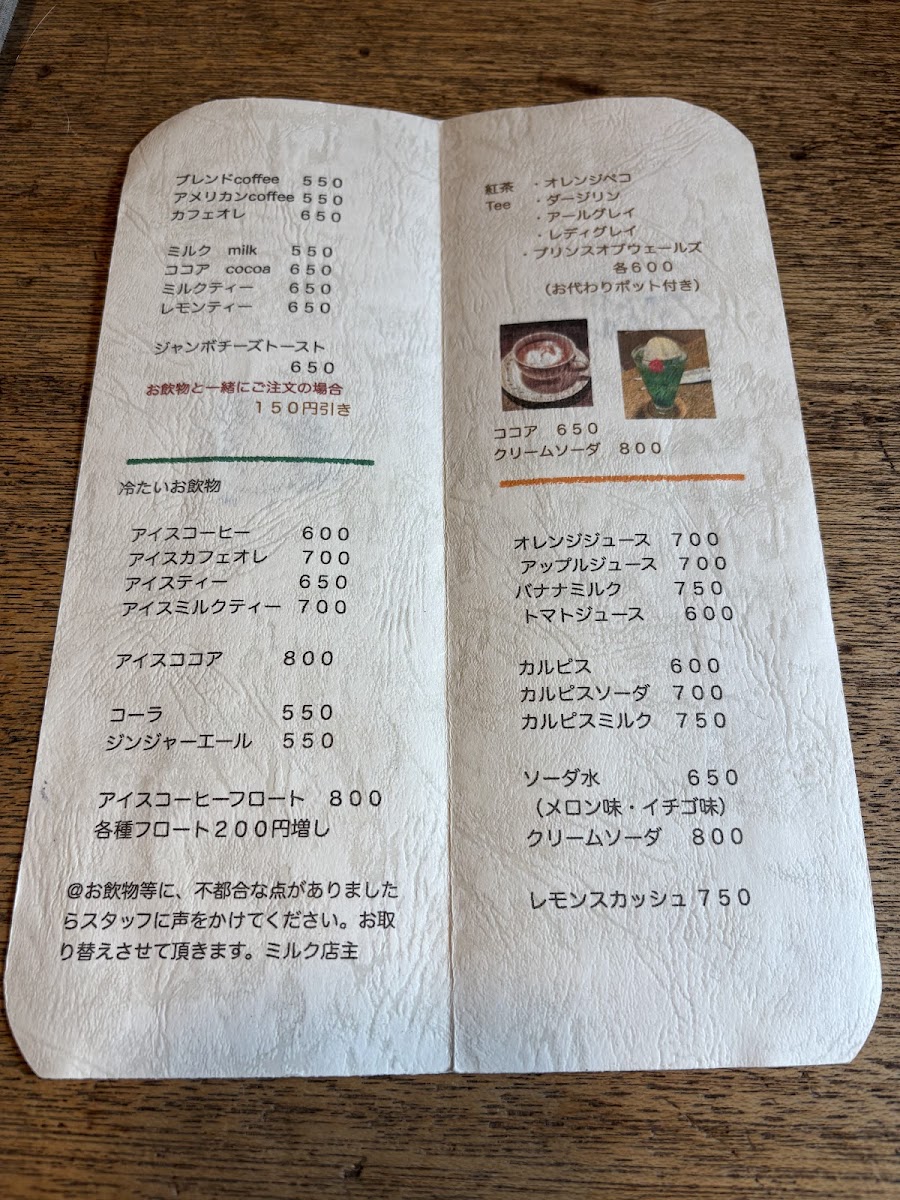 ブレンドcoffee　５５０
アメリカンcoffee ５５０
カフェオレ　　　６５０
ミルク　milk　　５５０
ココア　cocoa　６５０
ミルクティー　　６５０
レモンティー　　６５０
ジャンボチーズトースト
６５０
お飲物と一緒にご注文の場合
１５０円引き
冷たいお飲物
アイスコーヒー　　６００
アイスカフェオレ　７００
アイスティー　　　６５０
アイスミルクティー ７００
アイスココア　　　８００
コーラ　　　　　　５５０
ジンジャーエール　５５０
アイスコーヒーフロート　８００
各種フロート２００円増し
@お飲物等に、不都合な点がありました
らスタッフに声をかけてください。お取
り替えさせて頂きます。ミルク店主
紅茶　・オレンジペコ
Tee　・ダージリン
・アールグレイ
・レディグレイ
・プリンスオブウェールズ
各６００
（お代わりポット付き）
ココア　６５０
クリームソーダ　８００
オレンジジュース　７００
アップルジュース　７００
バナナミルク　　　７５０
トマトジュース　　６００
カルピス　　　　　６００
カルピスソーダ　７００
カルピスミルク　７５０
ソーダ水　　　　６５０
（メロン味・イチゴ味）
クリームソーダ　８００
レモンスカッシュ ７５０